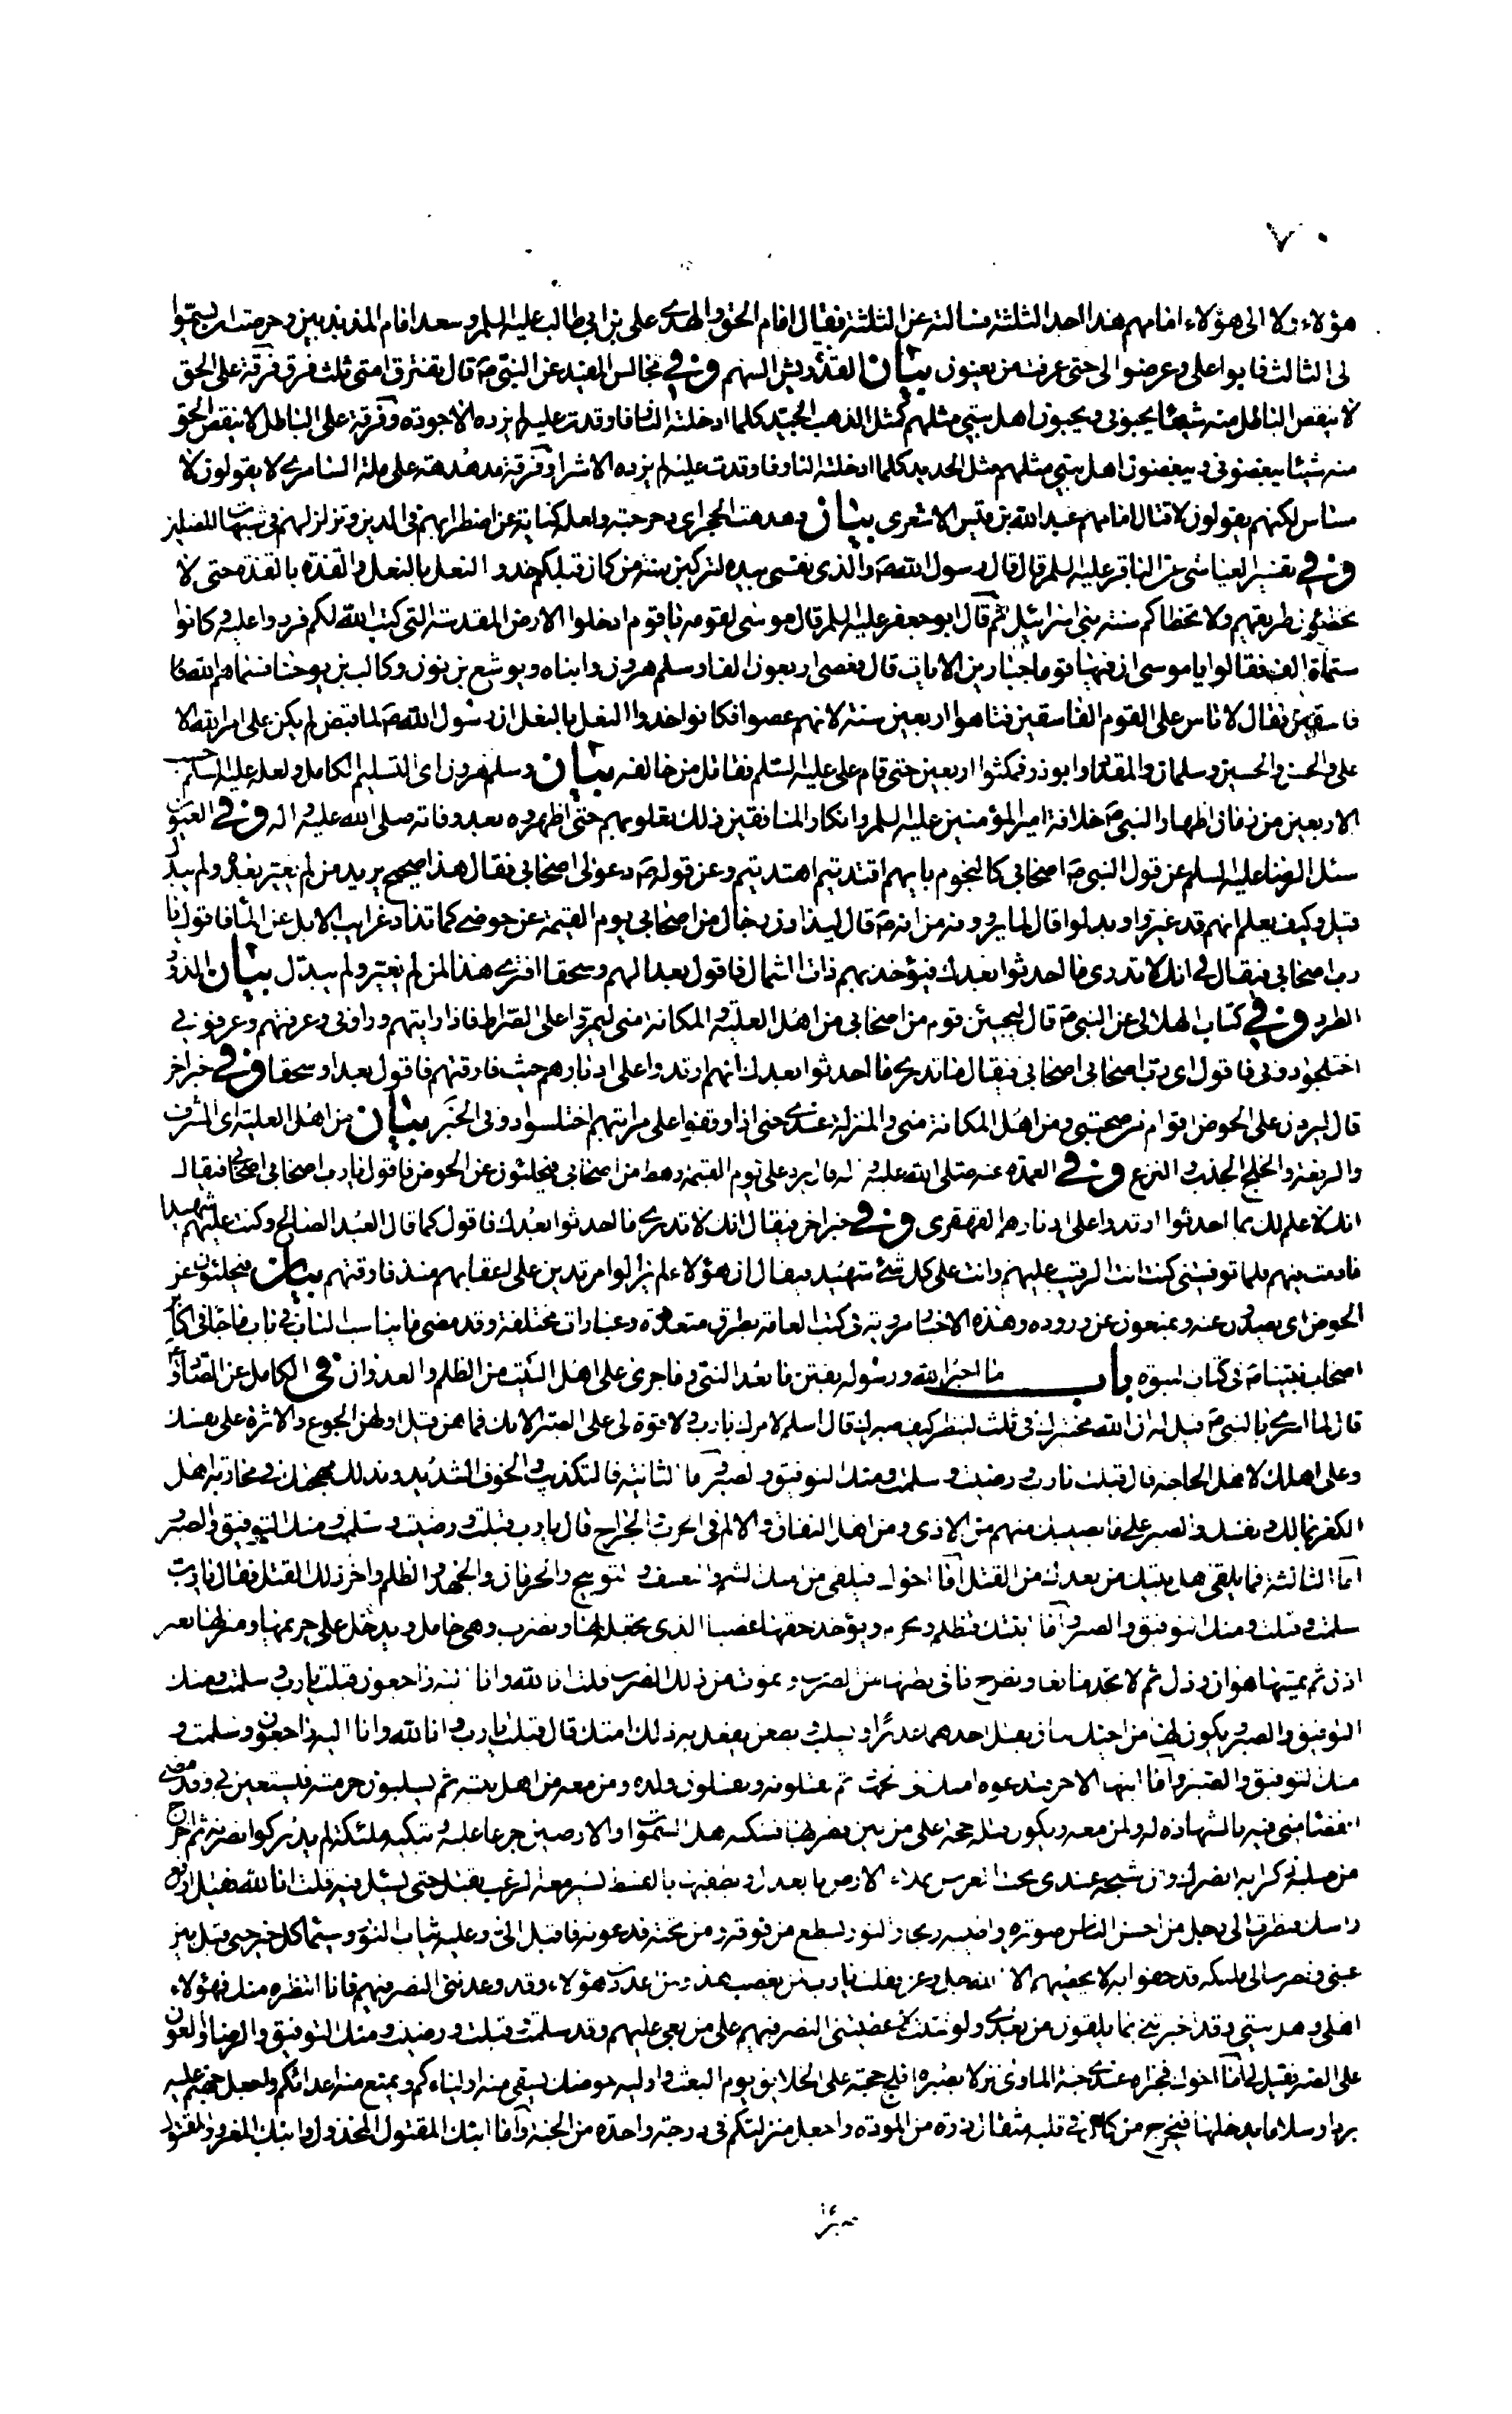 ٧٠
هؤلاء ولا الى هؤلاء امامهم هذا احد الثلثة فسالته عن الثلثة فقال امام الحق والهدى على بن ابي طالب عليه السلم وسعد امام المذبذبين وحرصت ان يسمّوا
لى الثالث فابوا على وعرضوا لى حتى عرفت من يعنون بيان القذذ ريش السهم وفي مجالس المفيد عن النبى ص قال يفترق امتى ثلث فرق فرقة على الحق
لا ينقص الباطل منه شيئا يحبونى ويحبون اهل بيتى مثلهم كمثل الذهب الجيّد كلما ادخلته النار فاوقدت عليه لم يزده الا جودة وفرقة على الباطل لا ينقص الحق
منه شيئا يبغضونى ويبغضون اهل بيتي مثلهم مثل الحديد كلما ادخلته النار فاوقدت عليه لم يزده الا شرا وفرقة مدهدهة على ملة السامرى لا يقولون لا
مساس لكنهم يقولون لا قتال امامهم عبد الله بن قيس الاشعرى بيان دهدهت الحجر اى دحرجته ولعله كناية عن اضطرابهم في الدين وتزلزلهم في شبهات المضلين
وفي تفسير العياشى عن الباقر عليه السلم قال قال رسول الله ص والذي نفسى بيده لتركبن سنن من كان قبلكم حذو النعل بالنعل والقذة بالقذة حتى لا
تخطئون طريقهم ولا تخطاكم سنة بني اسرائيل ثم قال ابو جعفر عليه السلم قال موسى لقومه يا قوم ادخلوا الارض المقدسة التى كتب الله لكم فردوا عليه وكانوا
ستمأة الف فقالوا يا موسى ان فيها قوما جبارين الايات قال فعصى اربعون الفا وسلم هرون وابناه ويوشع بن نون وكالب بن يوحنا فسماهم الله
فاسقين فقال لا تاس على القوم الفاسقين فتاهوا اربعين سنة لانهم عصوا فكانوا حذو النعل بالنعل ان رسول الله ص لما قبض لم يكن على امر الله الا
على والحسن والحسين وسلمان والمقداد وابو ذر فمكثوا اربعين حتى قام على عليه السلم فقاتل من خالفه بيان وسلم هرون اى التسليم الكامل ولعله عليه السلم حسب
الاربعين من زمان اظهار النبى ص خلافة امير المؤمنين عليه السلم وانكار المنافقين ذلك بقلوبهم حتى اظهروه بعد وفاته صلى الله عليه واله وفي العيون
سئل الرضا عليه السلم عن قول النبى ص اصحابى كالنجوم بايهم اقتديتم اهتديتم وعن قوله ص دعوا لى اصحابى فقال هذا صحيح يريد من لم يغير بعده ولم يبدل
قيل وكيف يعلم انهم قد غيروا وبدلوا قال لما يروونه من انه ص قال ليذادن رجال من اصحابى يوم القيمة عن حوضى كما تذاد غرايب الابل عن الماء فاقول يا
رب اصحابى فيقال لى انك لا تدرى ما احدثوا بعدك فيؤخذ بهم ذات الشمال فاقول بعدا لهم وسحقا افترى هذا لمن لم يغير ولم يبدّل بيان الذود
الطرد وفي كتاب الهلالى عن النبى ص قال ليجيئن قوم من اصحابى من اهل العلية والمكانة منى ليمروا على الصراط فاذا رايتهم وراونى وعرفتهم وعرفونى
اختلجوا دونى فاقول اى رب اصحابى اصحابى فيقال ما تدرى ما احدثوا بعدك انهم ارتدوا على ادبارهم حيث فارقتهم فاقول بعدا وسحقا وفي خبر اخر
قال ليردن على الحوض اقوام من صحبنى ومن اهل المكانة منى والمنزلة عندى حتى اذا وقفوا على مراتبهم اختلسوا دونى الخبر بيان من اهل العلية اى الشرف
والرفعة والخلج الجذب والنزع وفي العمدة عنه صلى الله عليه واله قال يرد على يوم القيمة رهط من اصحابى فيحلئون عن الحوض فاقول يا رب اصحابى اصحابى فيقال
انك لا علم لك بما احدثوا ارتدوا على ادبارهم القهقرى وفي خبر اخر فيقال انك لا تدرى ما احدثوا بعدك فاقول كما قال العبد الصالح وكنت عليهم شهيدا
ما دمت فيهم فلما توفيتنى كنت انت الرقيب عليهم وانت على كل شئ شهيد فيقال ان هؤلاء لم يزالوا مرتدين على اعقابهم منذ فارقتهم بيان فيحلئون عن
الحوض اى يصدون عنه ويمنعون عن وروده وهذه الاخبار مروية في كتب العامة بطرق متعددة وعبارات مختلفة وقد مضى ما يناسب الباب في باب ما جاء في اكابر
اصحاب نبينا ص في كتاب النبوة باب ما اخبر الله ورسوله بفتن ما بعد النبى وما جرى على اهل البيت من الظلم والعدوان في الكامل عن الصادق ع
قال لما اسرى بالنبى ص قيل له ان الله مختبرك في ثلث لينظر كيف صبرك قال اسلم لامرك يا رب ولا قوة لى على الصبر الا بك فما هن قيل اولهن الجوع والاثرة على نفسك
وعلى اهلك لاهل الحاجة قال قبلت يا رب ورضيت وسلمت ومنك التوفيق والصبر واما الثانية فالتكذيب والخوف الشديد وبذلك مهجتك في محاربة اهل
الكفر بمالك ونفسك والصبر على ما يصيبك منهم من الاذى ومن اهل النفاق والالم في الحرب والجراح قال يا رب قبلت ورضيت وسلمت ومنك التوفيق والصبر
اما الثالثة فما يلقى اهل بيتك من بعدك من القتل اما اخوك فيلقى من امتك الشتم والتعنيف والتوبيخ والحرمان والجهد والظلم واخر ذلك القتل فقال يا رب
سلمت وقبلت ومنك التوفيق والصبر واما ابنتك فتظلم وتحرم ويؤخذ حقها غصبا الذي تجعله لها وتضرب وهي حامل ويدخل على حريمها ومنزلها بغير
اذن ثم يمسها هوان وذل ثم لا تجد مانعا وتطرح ما في بطنها من الضرب وتموت من ذلك الضرب قلت انا لله وانا اليه راجعون قبلت يا رب وسلمت ومنك
التوفيق والصبر ويكون لها من اخيك ابنان يقتل احدهما غدرا ويسلب ويطعن يفعل به ذلك امتك قال قبلت يا رب وانا لله وانا اليه راجعون وسلمت و
منك التوفيق والصبر واما ابنها الاخر فتدعوه امتك الى ثم يقتلونه ويقتلون ولده ومن معه من اهل بيته ثم يسلبون حرمته فيستعين بى وقد مضى
القضا منى فيه بالشهادة له ولمن معه ويكون قتله حجة على من بين قطريها فتبكيه اهل السموات والارضين جزعا عليه وتبكيه ملئكة لم يدركوا نصرته ثم اخرج
من صلبه ذكرا به انصرك وان شبحه عندى تحت العرش يملاء الارض بالعدل ويطفيها بالقسط يسير معه الرعب يقتل حتى يشك فيه قلت انا لله فقيل ارفع
راسك فنظرت الى رجل من احسن الناس صورة واطيبه ريحا والنور يسطع من فوقه ومن تحته فدعوته فاقبل الى وعليه ثياب النور وسيما كل خير حتى قبل بين
عينى ونظرت الى ملئكة قد حفوا به لا يحصيهم الا الله جل وعز فقلت يا رب لمن يغضب هذا ولمن اعددت هؤلاء وقد وعدتنى النصر فيهم فانا انتظره منك فهؤلاء
اهلى واهل بيتى وقد اخبرتنى بما يلقون من بعدى ولو شئت لاعطيتنى النصر فيهم على من بغى عليهم وقد سلمت وقبلت ورضيت ومنك التوفيق والرضا والعون
على الصبر فقيل لى اما اخوك فجزاه عندى جنة الماوى نزلا بصبره افلج حجته على الخلايق يوم البعث واوليه حوضك يسقى منه اولياءكم ويمنع منه اعدائكم واجعل جهنم عليه
بردا وسلاما يدخلها فيخرج من كان في قلبه مثقال ذرة من المودة واجعل منزلتكم في درجة واحدة من الجنة واما ابنك المقتول المخذول وابنك المغدور المقتول